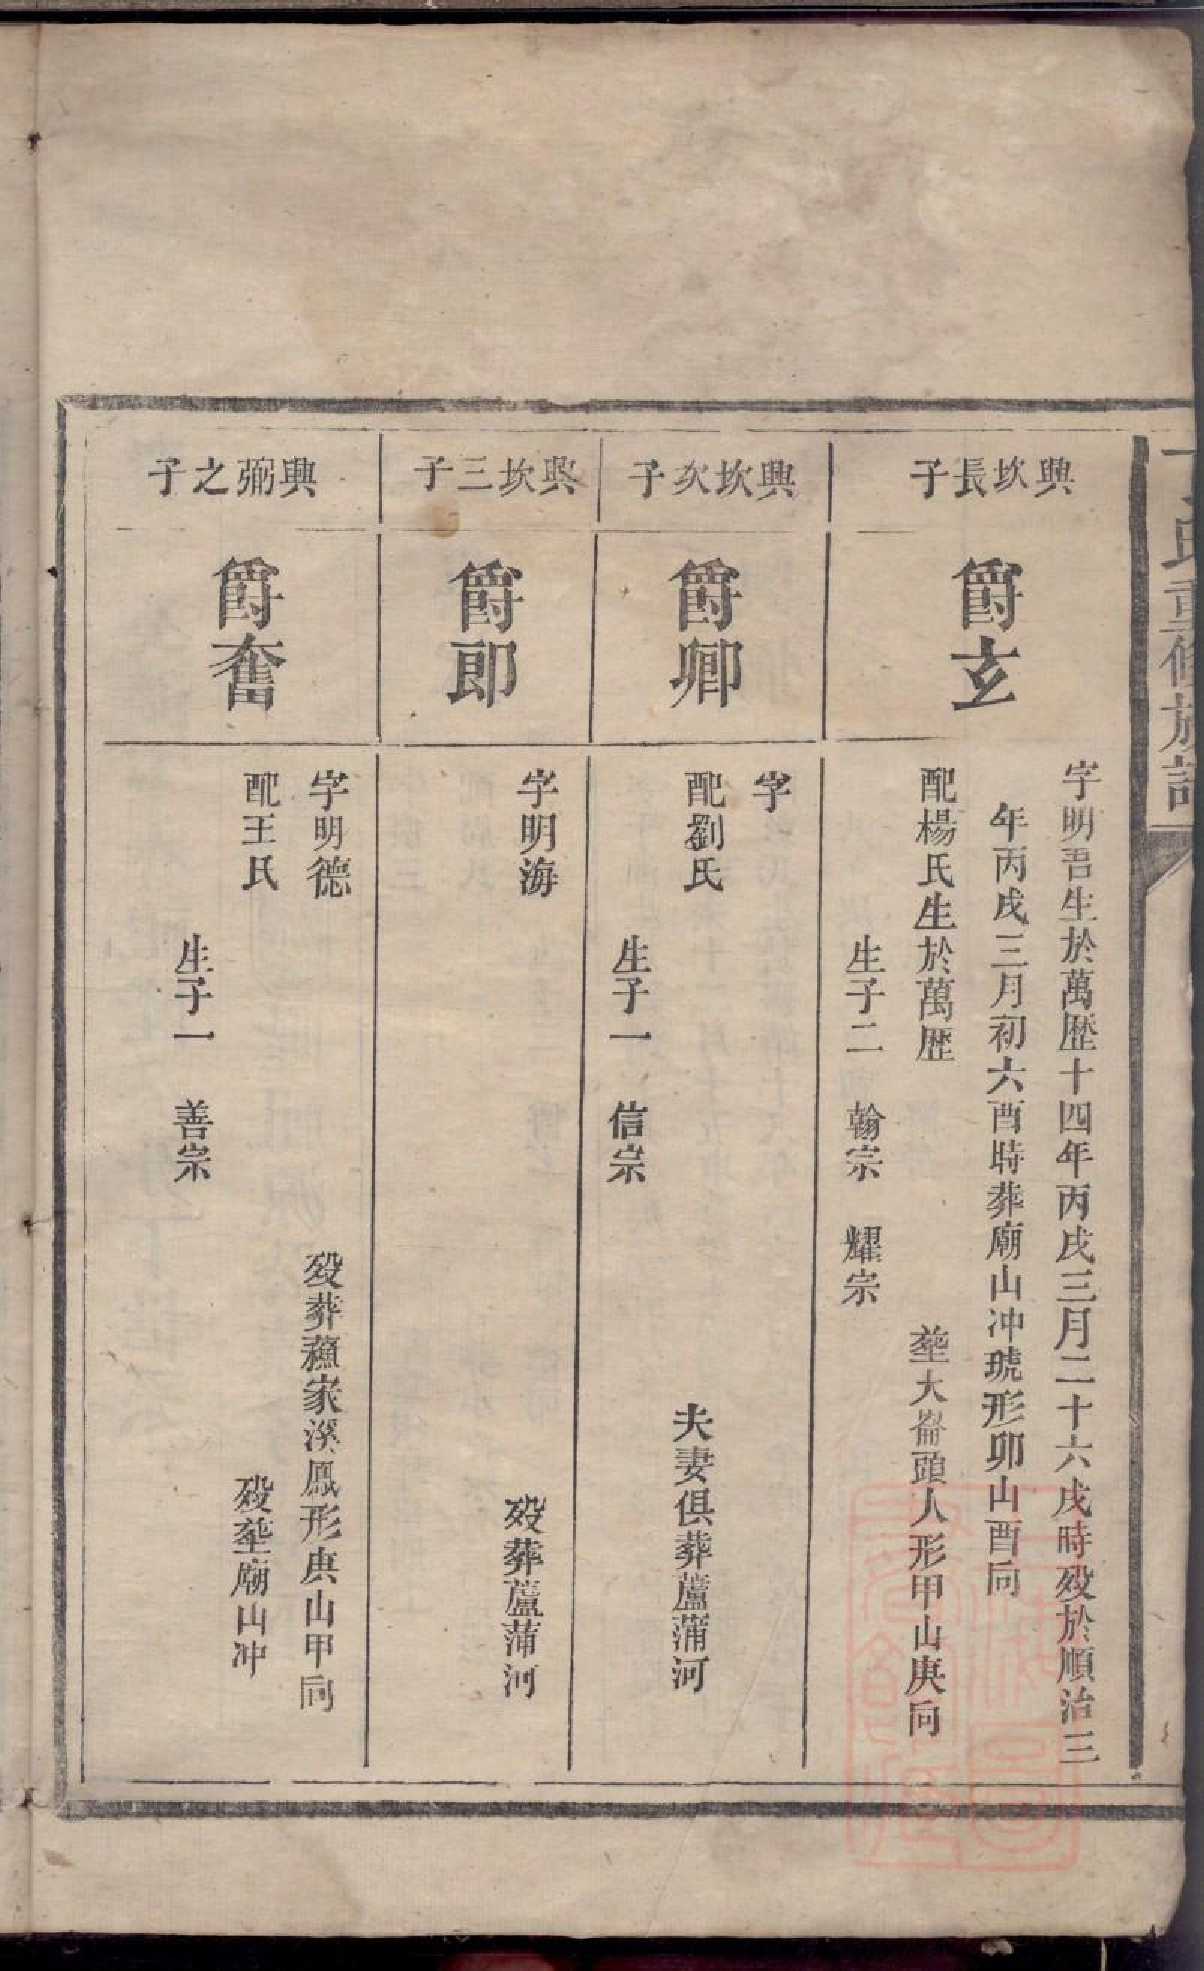 氏重修族譜
興坎長子
爵玄
字明吾生於萬歷十四年丙戌三月二十六戌時殁於順治三
年丙戌三月初六酉時葬廟山冲琥形卯山酉向
配楊氏生於萬歷
塟大崙頭人形甲山庚向
生子二 翰宗 耀宗
興坎次子
爵卿
字
配劉氏
夫妻俱葬蘆蒲河
生子一 信宗
興坎三子
爵郎
字明海
殁葬蘆蒲河
興弼之子
爵奮
字明德
殁葬蘓家溪鳳形庚山甲向
配王氏
殁塟廟山冲
生子一 善宗